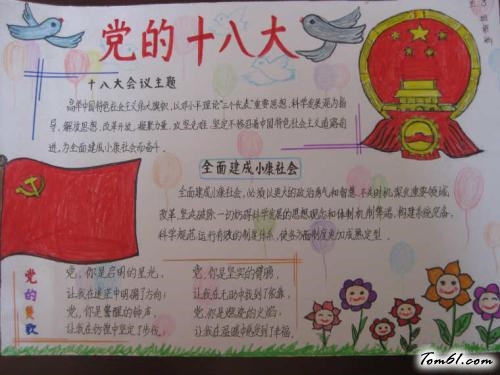 党的十八大
十八大会议主题
高举中国特色社会主义伟大旗帜，以邓小平理论"三个代表"重要思想、科学发展观为指
导，解放思想，改革开放，凝聚力量，攻坚克难，坚定不移沿着中国特色社会主义道路前
进，为全面建成小康社会而奋斗。
全面建成小康社会
全面建成小康社会，必须以更大的政治勇气和智慧，不失时机深化重要领域
改革，坚决破除一切妨碍科学发展的思想观念和体制机制弊端，构建系统完备，
科学规范，运行有效的制度体系，使各方面制度更加成熟定型。
党的赞歌
党，你是启明的星光，
让我在迷茫中明确了方向；
党，你是警醒的钟声，
让我在彷徨中坚定了步伐。
党，你是坚实的臂膀，
让我在无助中找到了依靠；
党，你是燃烧的火焰；
让我在温暖中感受到了幸福。
Tom61.com